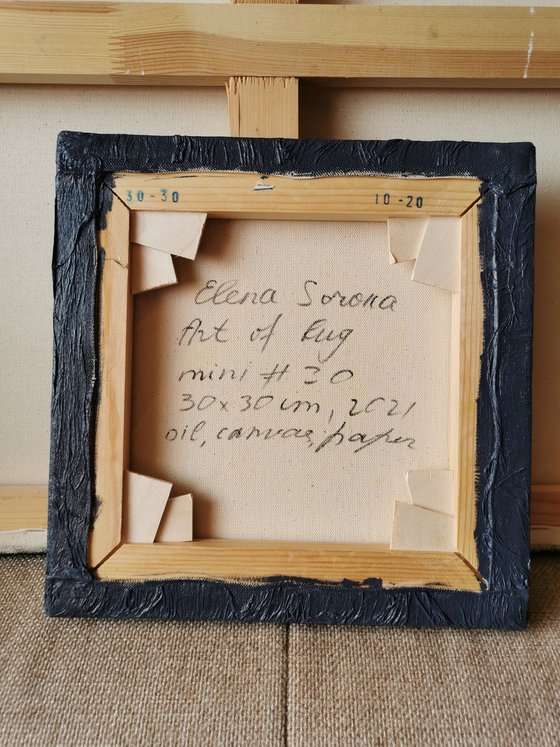 30-30
10-20
Elena Soroka
Art of Rug
mini # 30
30x30 cm, 2021
oil, canvas, paper